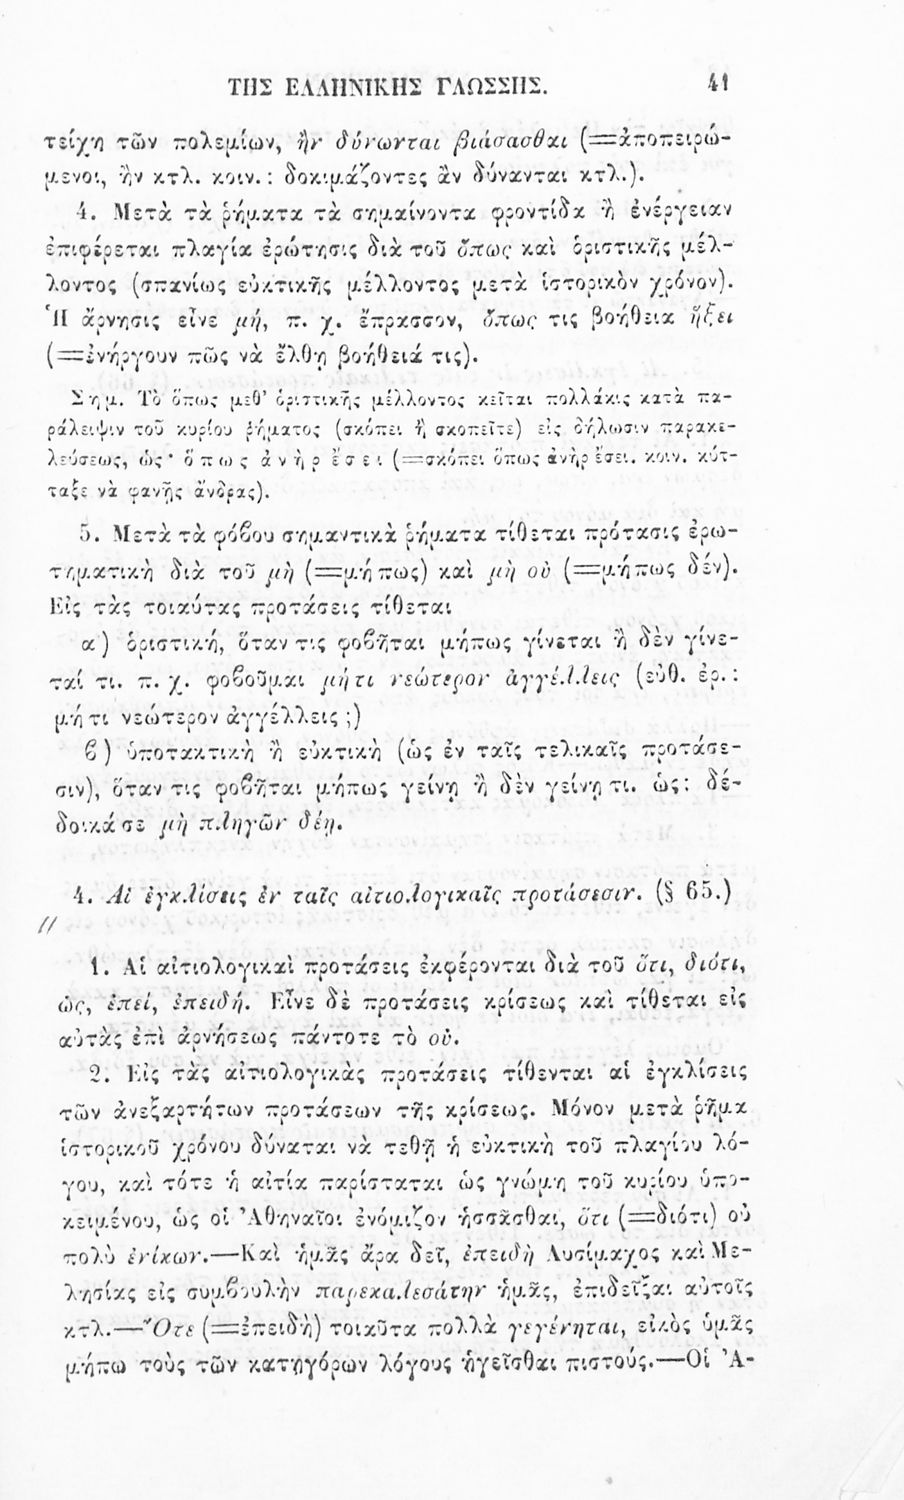 ΤΗΣ ΕΛΛΗΝΙΚΗΣ ΓΛΩΣΣΗΣ. 41
τείχη τῶν πολεμίων, ἢν δύνωνται βιάσασθαι (=ἀποπειρώ-
μενοι, ἢν κτλ. κοιν.: δοκιμάζοντες ἂν δύνανται κτλ.).
4. Μετὰ τὰ ῥήματα τὰ σημαίνοντα φροντίδα ἢ ἐνέργειαν
ἐπιφέρεται πλαγία ἐρώτησις διὰ τοῦ ὅπως καὶ ὁριστικῆς μέλ-
λοντος (σπανίως εὐκτικῆς μέλλοντος μετὰ ἱστορικὸν χρόνον).
Ἡ ἄρνησις εἶνε μή, π. χ. ἔπρασσον, ὅπως τις βοήθεια ἥξει
(=ἐνήργουν πῶς νὰ ἔλθῃ βοήθειά τις).
Σημ. Τὸ ὅπως μεθ' ὁριστικῆς μέλλοντος κεῖται πολλάκις κατὰ πα-
ράλειψιν τοῦ κυρίου ῥήματος (σκόπει ἢ σκοπεῖτε) εἰς δήλωσιν παρακε-
λεύσεως, ὡς· ὅπως ἀνὴρ ἔσει (=σκόπει ὅπως ἀνὴρ ἔσει. κοιν. κύτ-
ταξε νὰ φανῇς ἄνδρας).
5. Μετὰ τὰ φόβου σημαντικὰ ῥήματα τίθεται πρότασις ἐρω-
τηματικὴ διὰ τοῦ μὴ (=μήπως) καὶ μὴ οὐ (=μήπως δέν).
Εἰς τὰς τοιαύτας προτάσεις τίθεται
α) ὁριστική, ὅταν τις φοβῆται μήπως γίνεται ἢ δὲν γίνε-
ταί τι. π. χ. φοβοῦμαι μή τι νεώτερον ἀγγέλλεις (εὐθ. ἐρ.:
μή τι νεώτερον ἀγγέλλεις;)
β) ὑποτακτικὴ ἢ εὐκτικὴ (ὡς ἐν ταῖς τελικαῖς προτάσε-
σιν), ὅταν τις φοβῆται μήπως γείνῃ ἢ δὲν γείνῃ τι. ὡς: δέ-
δοικά σε μὴ πληγῶν δέῃ.
4. Αἱ ἐγκλίσεις ἐν ταῖς αἰτιολογικαῖς προτάσεσιν. (§ 65.)
1. Αἱ αἰτιολογικαὶ προτάσεις ἐκφέρονται διὰ τοῦ ὅτι, διότι,
ὡς, ἐπεί, ἐπειδή. Εἶνε δὲ προτάσεις κρίσεως καὶ τίθεται εἰς
αὐτὰς ἐπὶ ἀρνήσεως πάντοτε τὸ οὐ.
2. Εἰς τὰς αἰτιολογικὰς προτάσεις τίθενται αἱ ἐγκλίσεις
τῶν ἀνεξαρτήτων προτάσεων τῆς κρίσεως. Μόνον μετὰ ῥῆμα
ἱστορικοῦ χρόνου δύναται νὰ τεθῇ ἡ εὐκτικὴ τοῦ πλαγίου λό-
γου, καὶ τότε ἡ αἰτία παρίσταται ὡς γνώμη τοῦ κυρίου ὑπο-
κειμένου, ὡς οἱ Ἀθηναῖοι ἐνόμιζον ἡσσᾶσθαι, ὅτι (=διότι) οὐ
πολὺ ἐνίκων.—Καὶ ἡμᾶς ἄρα δεῖ, ἐπειδὴ Λυσίμαχος καὶ Με-
λησίας εἰς συμβουλὴν παρεκαλεσάτην ἡμᾶς, ἐπιδεῖξαι αὐτοῖς
κτλ.—Ὅτε (=ἐπειδὴ) τοιαῦτα πολλὰ γεγένηται, εἰκὸς ὑμᾶς
μήπω τοὺς τῶν κατηγόρων λόγους ἡγεῖσθαι πιστούς.—Οἱ Ἀ-